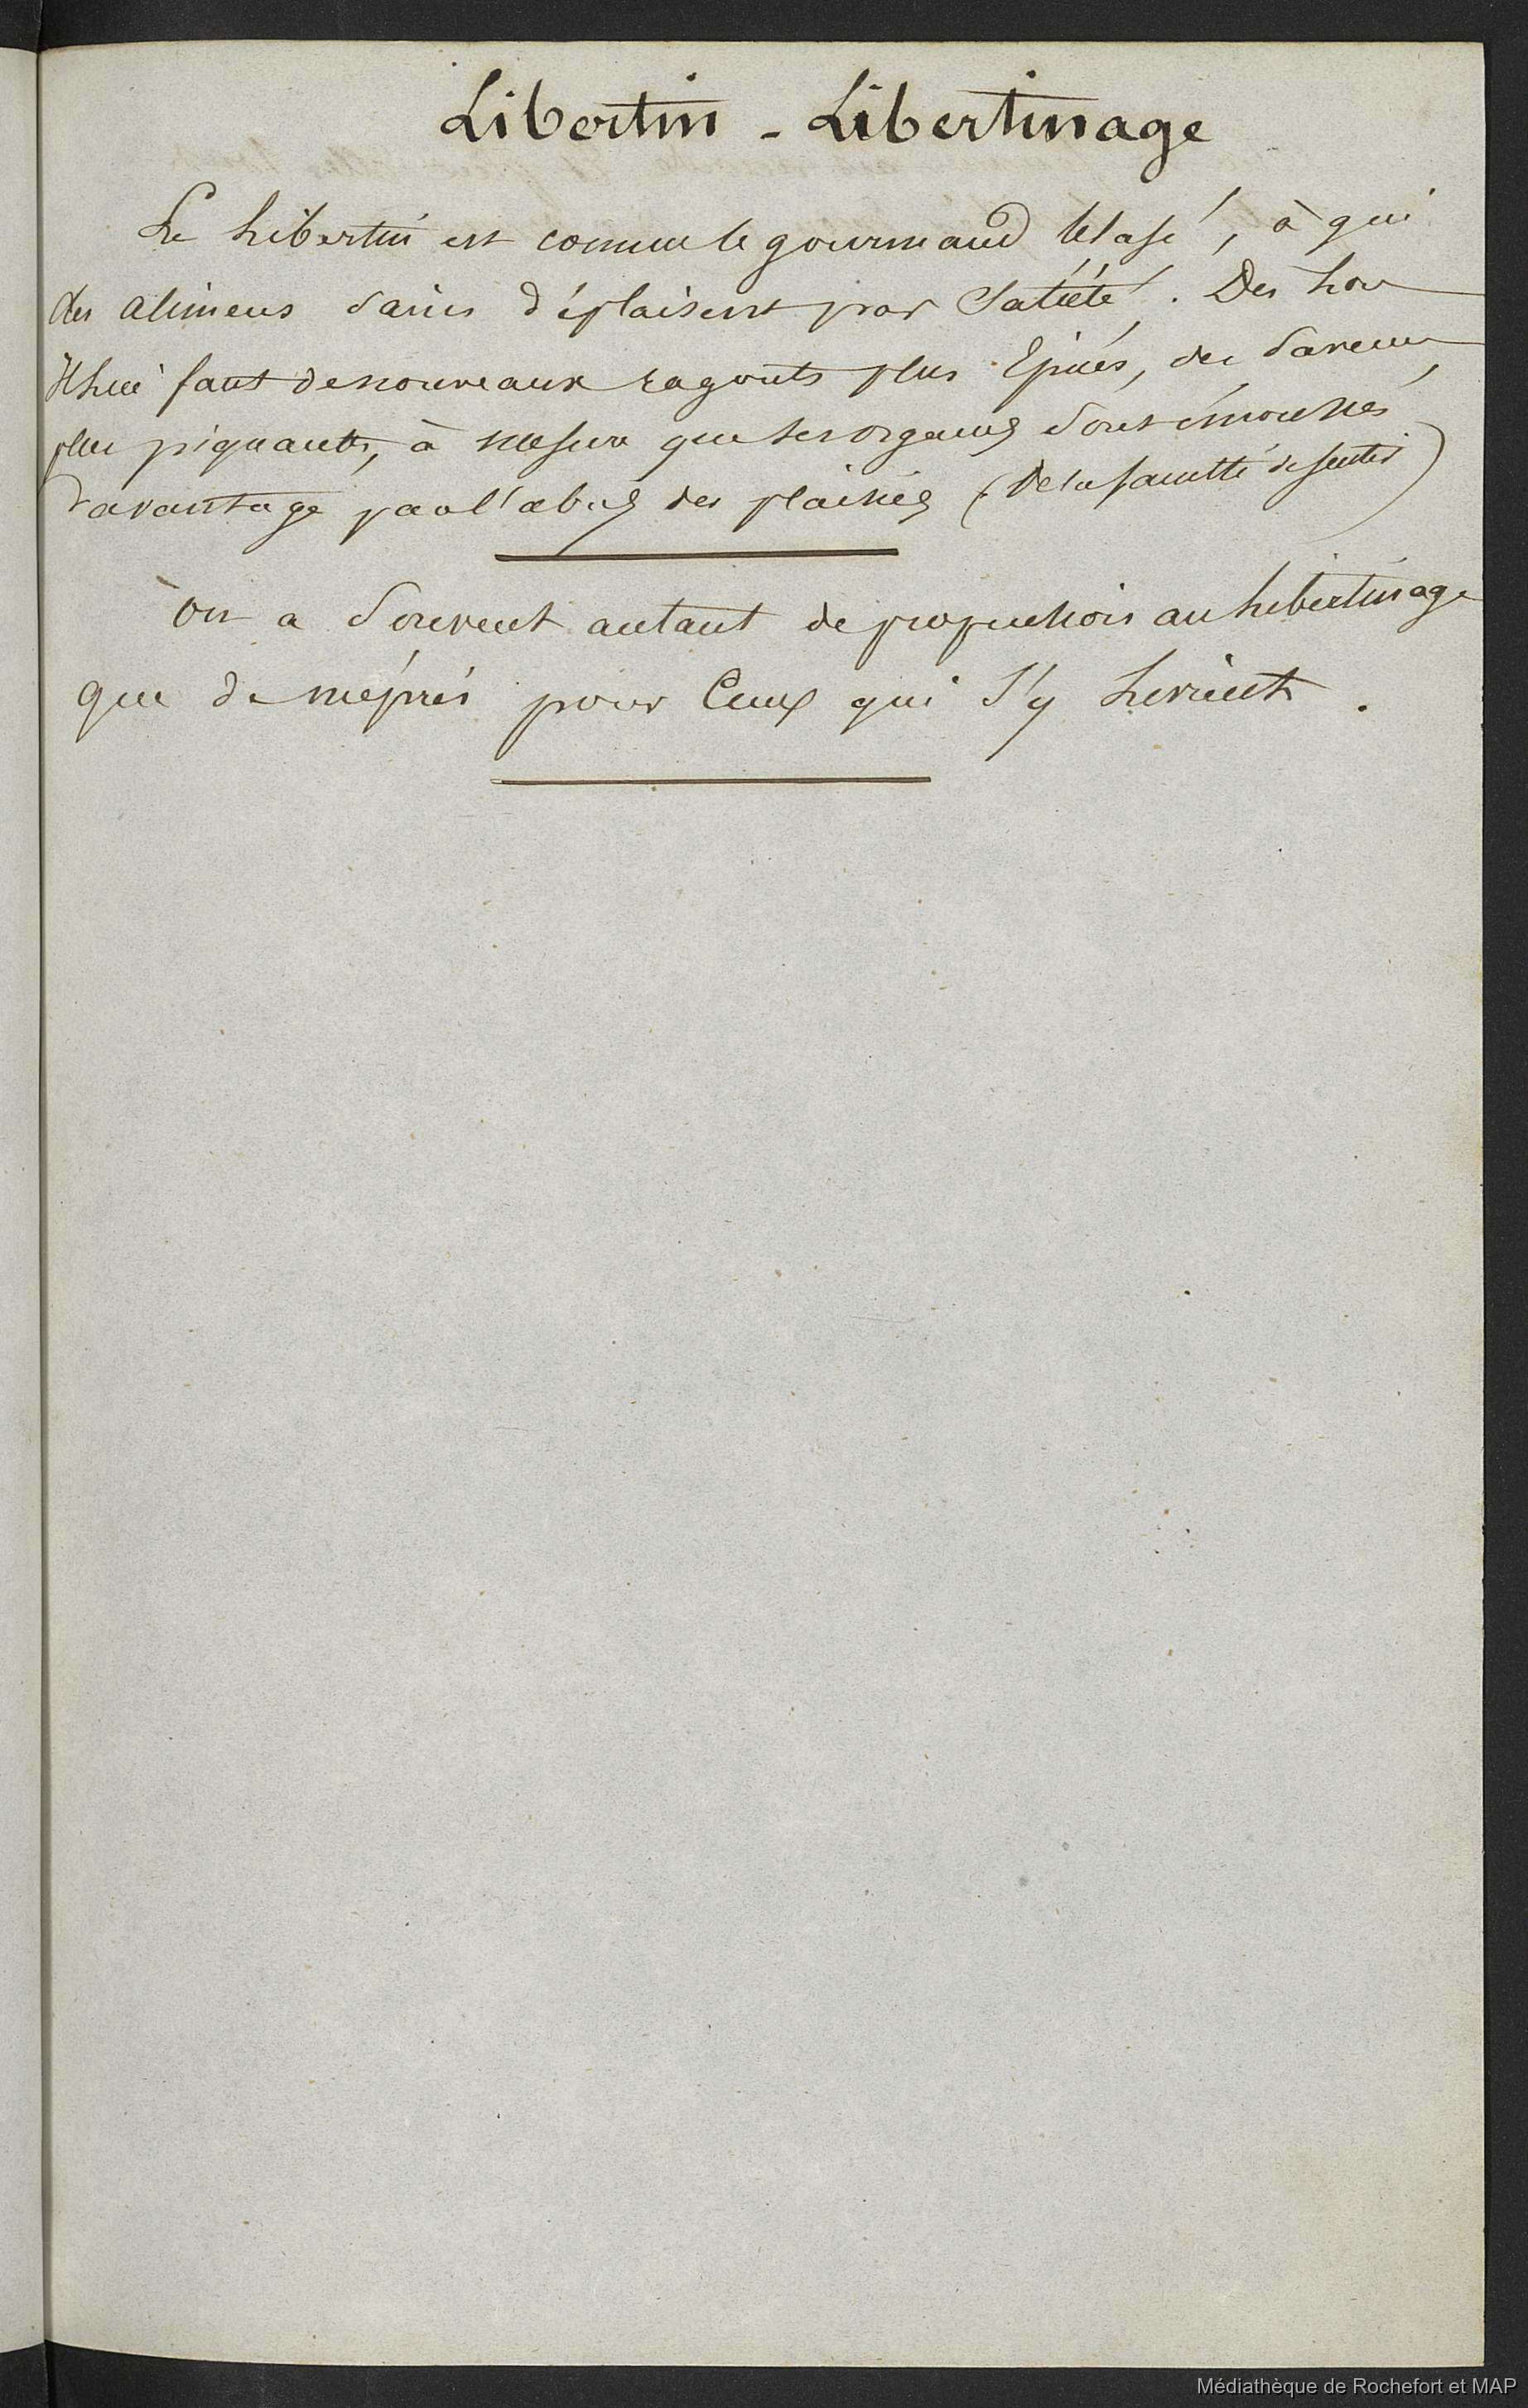 Libertin - Libertinage
Le Libertin est comme le gourmand blasé, à qui
des alimens sains déplaisent par Satiété. Dès lors
Il lui faut de nouveaux ragouts plus Epicés, des saveurs
plus piquantes, à mesure que ses organes sont émoussés
davantage par l'abus des plaisirs (De la faculté de sentir)
On a souvent autant de propension au libertinage
que de mépris pour Ceux qui s'y livrent.
Médiathèque de Rochefort et MAP